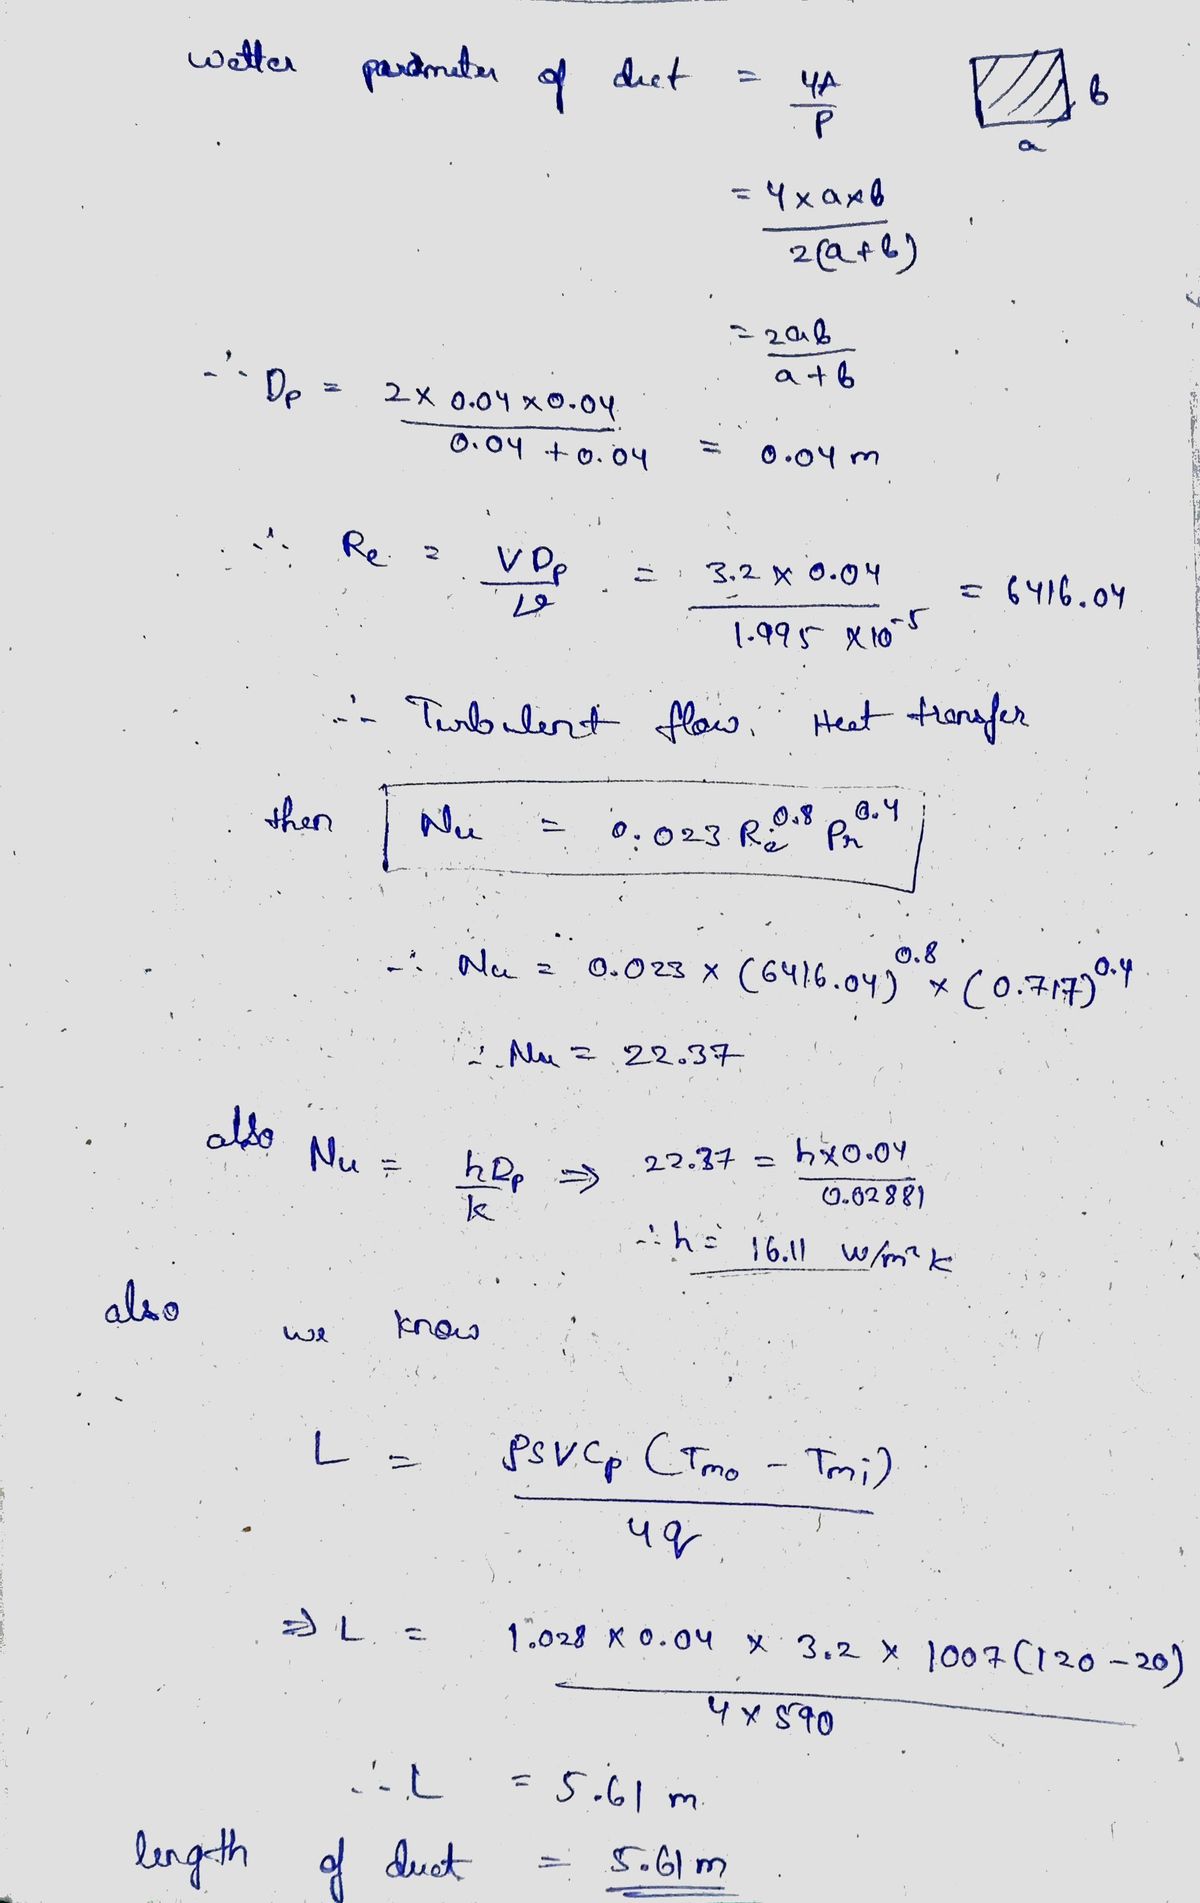 wetter parameter of duct = 4A/P
b
a
= 4×a×b / 2(a+b)
= 2ab / a+b
∴ Dp = 2× 0.04×0.04 / 0.04 +0.04 = 0.04 m
∴ Re = VDp/ν = 3.2 × 0.04 / 1.995 ×10⁻⁵ = 6416.04
∴ Turbulent flow. Heat transfer
then Nu = 0.023 Re^0.8 Pr^0.4
∴ Nu = 0.023 × (6416.04)^0.8 × (0.717)^0.4
∴ Nu = 22.37
also Nu = hDp/k ⇒ 22.37 = h×0.04 / 0.02881
∴ h = 16.11 w/m²k
also we know
L = ρSVCp (Tmo - Tmi) / 4q
⇒ L = 1.028 × 0.04 × 3.2 × 1007(120-20) / 4×590
∴ L = 5.61 m.
length of duct = 5.61 m